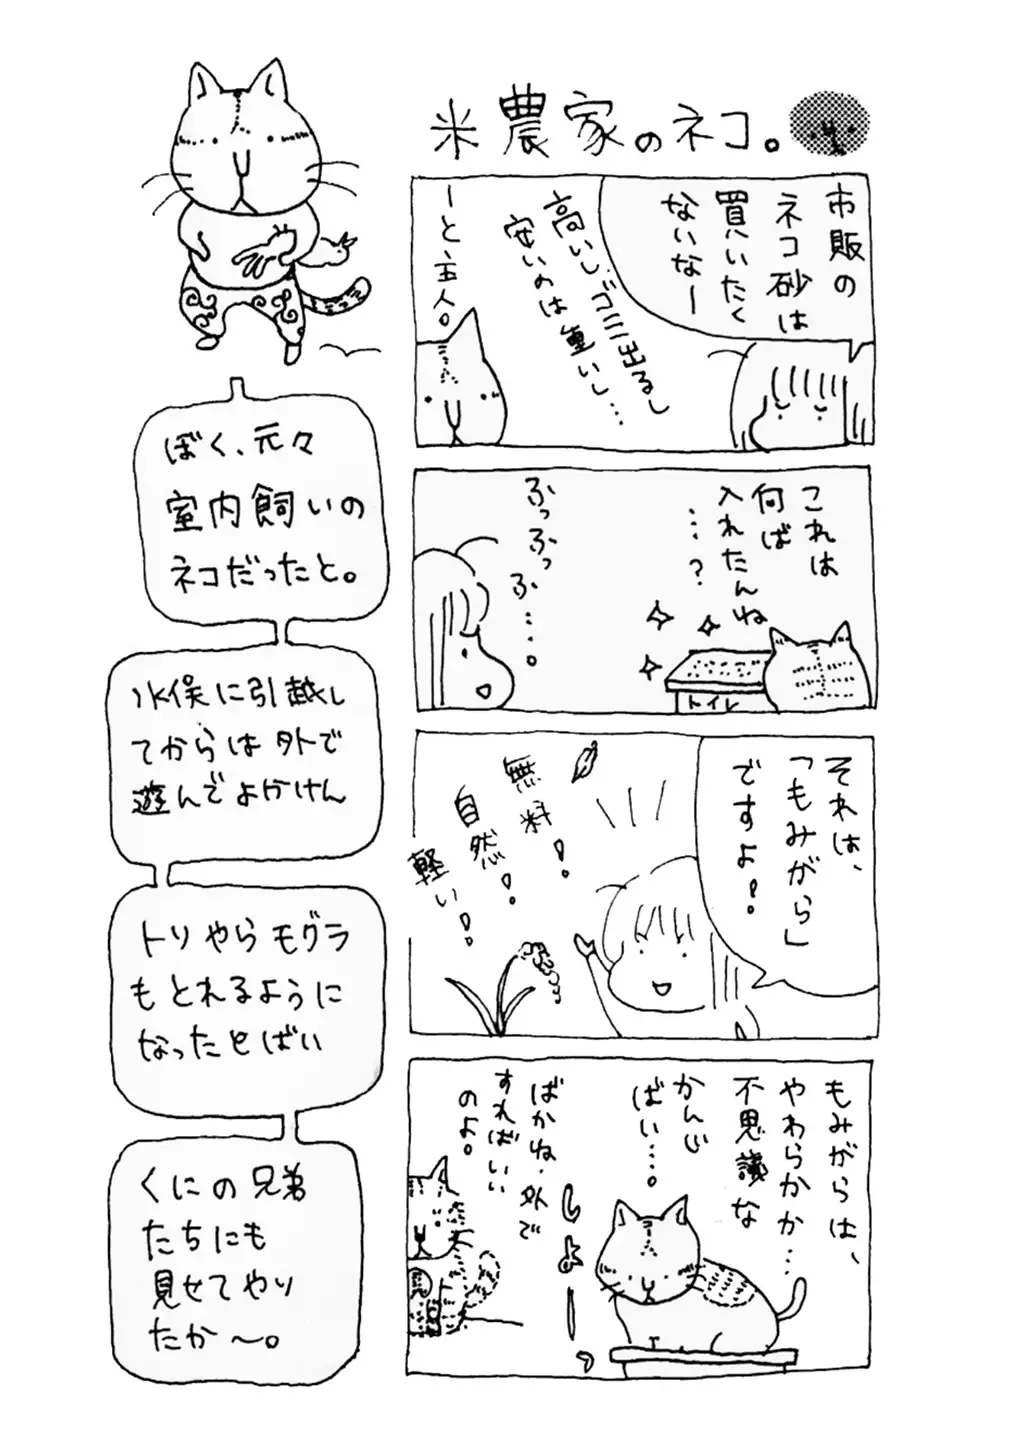 米農家のネコ。
市販の
ネコ砂は
買いたく
ないなー
高いしゴミ出るし
安いのは重いし…
ーと主人。
これは
何ば
入れたんね
……?
トイレ
ふっふっふ……。
それは、
「もみがら」
ですよ!
無料!
自然!
軽い!
もみがらは、
やわらかか…
不思議な
かんじ
ばい……。
しよーっ
ばかね、外で
すればいい
のよ。
ぼく、元々
室内飼いの
ネコだったと。
水俣に引越し
てからは外で
遊んでよかけん
トリやらモグラ
もとれるように
なったとばい
くにの兄弟
たちにも
見せてやり
たか〜。